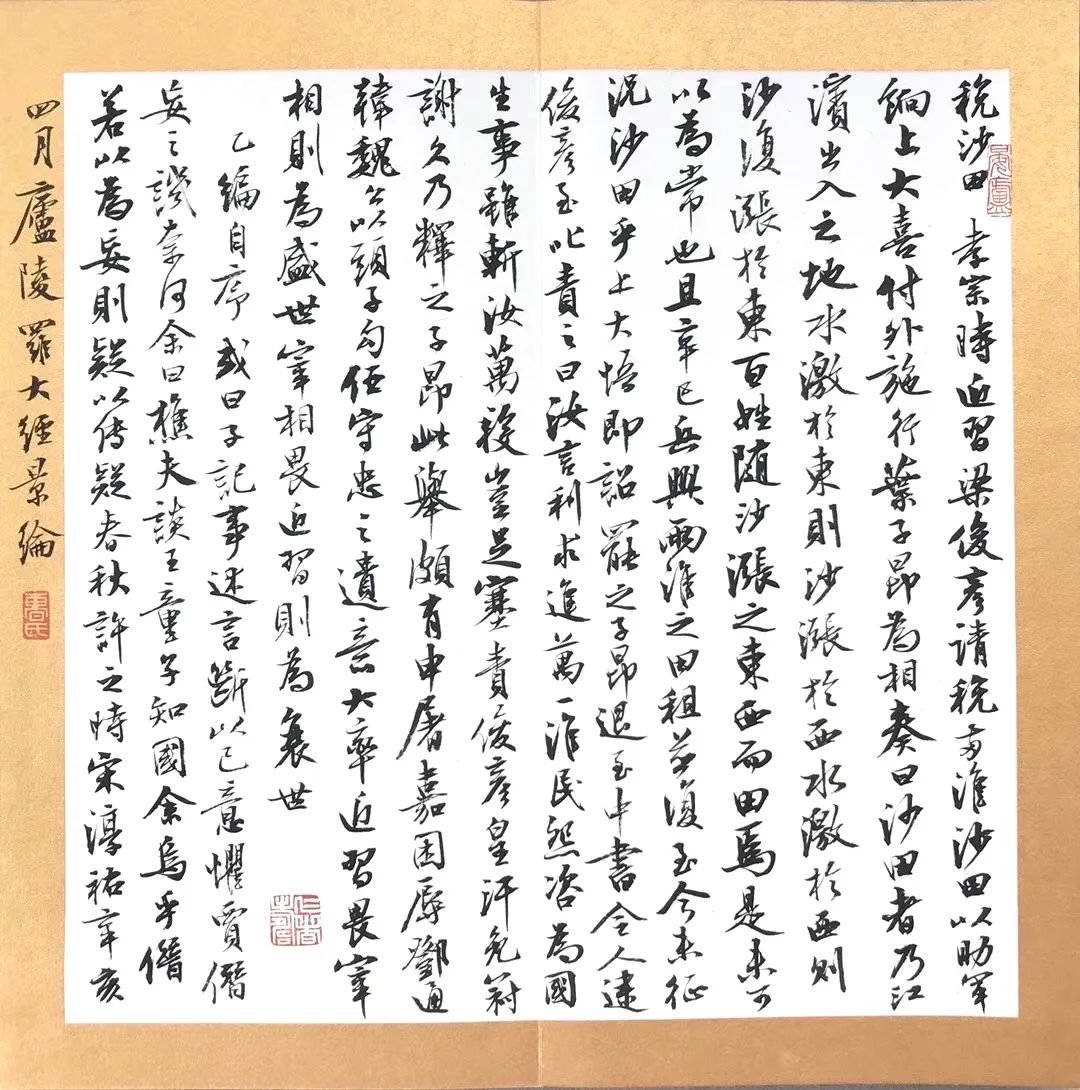 税沙田 孝宗時近習梁俊彥請税兩淮沙田以助軍
餉上大喜付外施行葉子昂為相奏曰沙田者乃江
濱出入之地水激於東則沙漲於西水激於西則
沙復漲於東百姓随沙漲之東西而田焉是未可
以為常也且辛巳兵興兩淮之田租並復至今未征
況沙田乎上大悟即詔罷之子昂退至中書令人逮
俊彥至叱責之曰汝言利求進萬一淮民怨咨為國
生事雖斬汝萬段豈足塞責俊彥皇汗免冠
謝久乃釋之子昂此舉頗有申屠嘉困辱鄧通
韓魏公以頭子勾任守忠之遺意大率近習畏宰
相則為盛世宰相畏近習則為衰世
仁者壽
乙編自序 或曰子記事述言斷以己意懼賈僭
妄之譏奈何余曰樵夫談王童子知國余烏乎僭
若以為妄則疑以傳疑春秋許之時宋淳祐辛亥
四月廬陵羅大經景綸